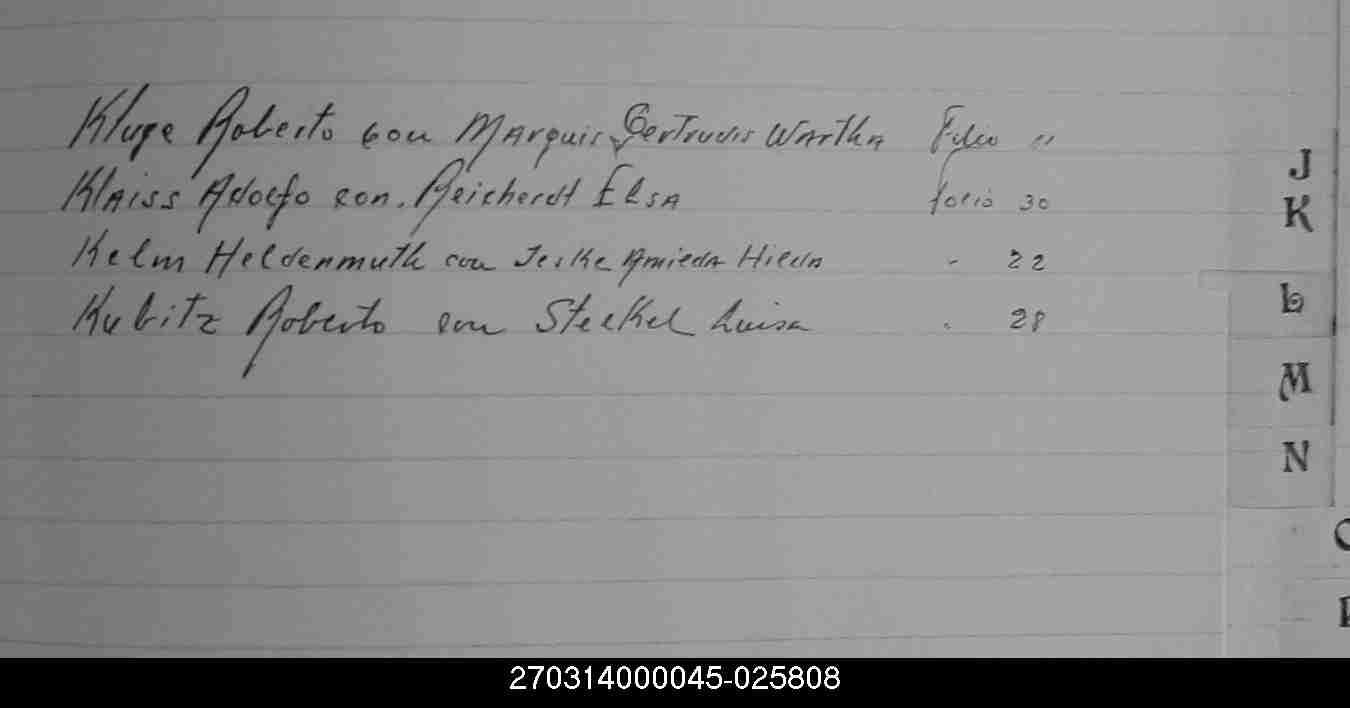 Kluge Roberto con Marquis Gertrudis Wartha Folio 11
Klaiss Adolfo con. Reicherdt Elsa folio 30
Kelm Heldenmuth con Jeske Amieda Hilda " 22
Kubitz Roberto con Steckel Luisa " 28
J
K
L
M
N
270314000045-025808